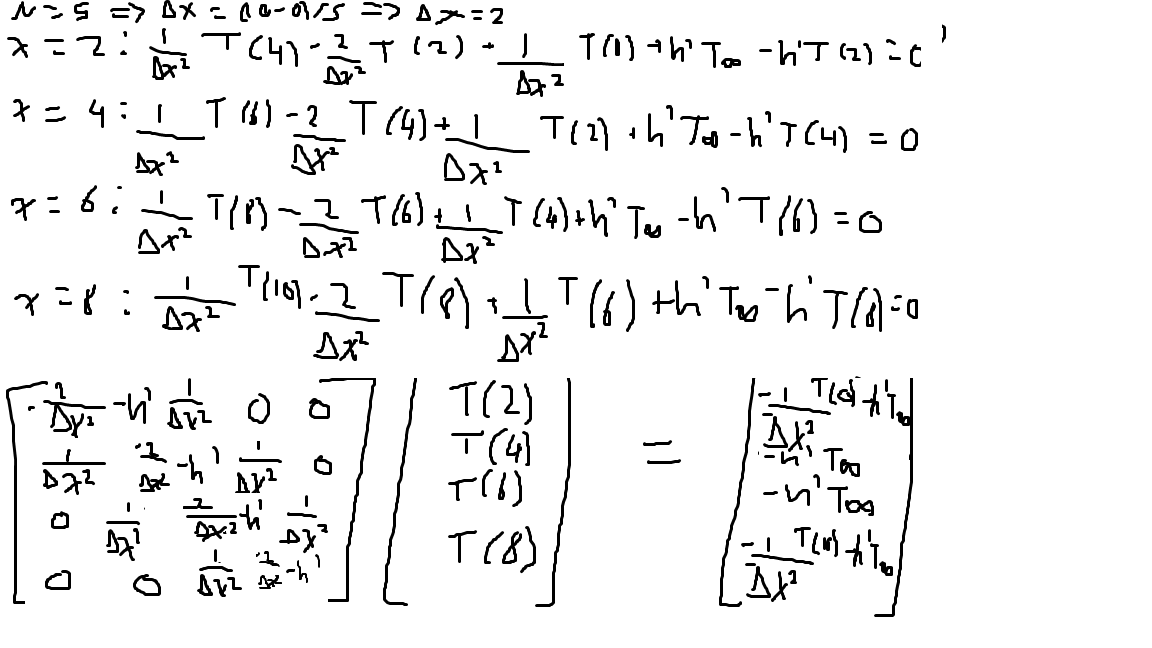 N = 5 => Δx = (10-0)/5 => Δx = 2
x = 2 : 1/Δx² T(4) - 2/Δx² T(2) + 1/Δx² T(0) + h' T∞ - h' T(2) = 0
x = 4 : 1/Δx² T(6) - 2/Δx² T(4) + 1/Δx² T(2) + h' T∞ - h' T(4) = 0
x = 6 : 1/Δx² T(8) - 2/Δx² T(6) + 1/Δx² T(4) + h' T∞ - h' T(6) = 0
x = 8 : 1/Δx² T(10) - 2/Δx² T(8) + 1/Δx² T(6) + h' T∞ - h' T(8) = 0
[ -2/Δx² - h' 1/Δx² 0 0 ] [ T(2) ] [ -1/Δx² T(0) - h' T∞ ]
[ 1/Δx² -2/Δx² - h' 1/Δx² 0 ] [ T(4) ] = [ -h' T∞ ]
[ 0 1/Δx² -2/Δx² - h' 1/Δx² ] [ T(6) ] [ -h' T∞ ]
[ 0 0 1/Δx² -2/Δx² - h' ] [ T(8) ] [ -1/Δx² T(10) - h' T∞ ]